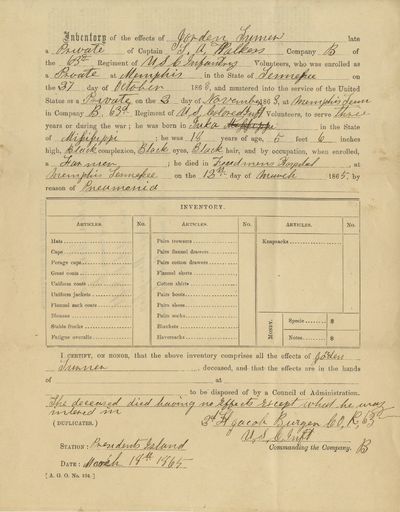 Inventory of the effects of Jorden Turner late
a Private of Captain T. A. Walkers Company B of
the 63rd Regiment of U S C Infantry Volunteers, who was enrolled as
a Private at Memphis in the State of Tennessee on
the 27 day of October 186 , and mustered into the service of the United
States as a Private on the 3 day of November 1863, at Memphis Tenn
in Company B, 63rd Regiment of U.S. Colored Inft Volunteers, to serve three
years or during the war; he was born in Iuka in the State
of Mississippi ; he was 18 years of age, 5 feet 6 inches
high, Black complexion, Black eyes, Black hair, and by occupation, when enrolled,
a Farmer ; he died in Freedmens Hospital, at
Memphis Tennessee on the 12th day of March 1865; by
reason of Pneumonia
INVENTORY.
ARTICLES. No. ARTICLES. No. ARTICLES. No.
Hats Pairs trowsers Knapsacks
Caps Pairs flannel drawers
Forage caps Pairs cotton drawers
Great coats Flannel shirts
Uniform coats Cotton shirts
Uniform jackets Pairs boots
Flannel sack coats Pairs shoes
Blouses Pairs socks MONEY. Specie $
Stable frocks Blankets
Fatigue overalls Haversacks Notes $
I CERTIFY, ON HONOR, that the above inventory comprises all the effects of Jorden
Turner deceased, and that the effects are in the hands
of at
to be disposed of by a Council of Administration.
The deceased died having no Effects Except what he was
intered in
(DUPLICATES.) Jacob Burgen CO, B, 63rd
U, S, C, Inft
STATION: Presidents Island Commanding the Company. B
DATE: March 19th 1865
[A. G. O. No. 104.]